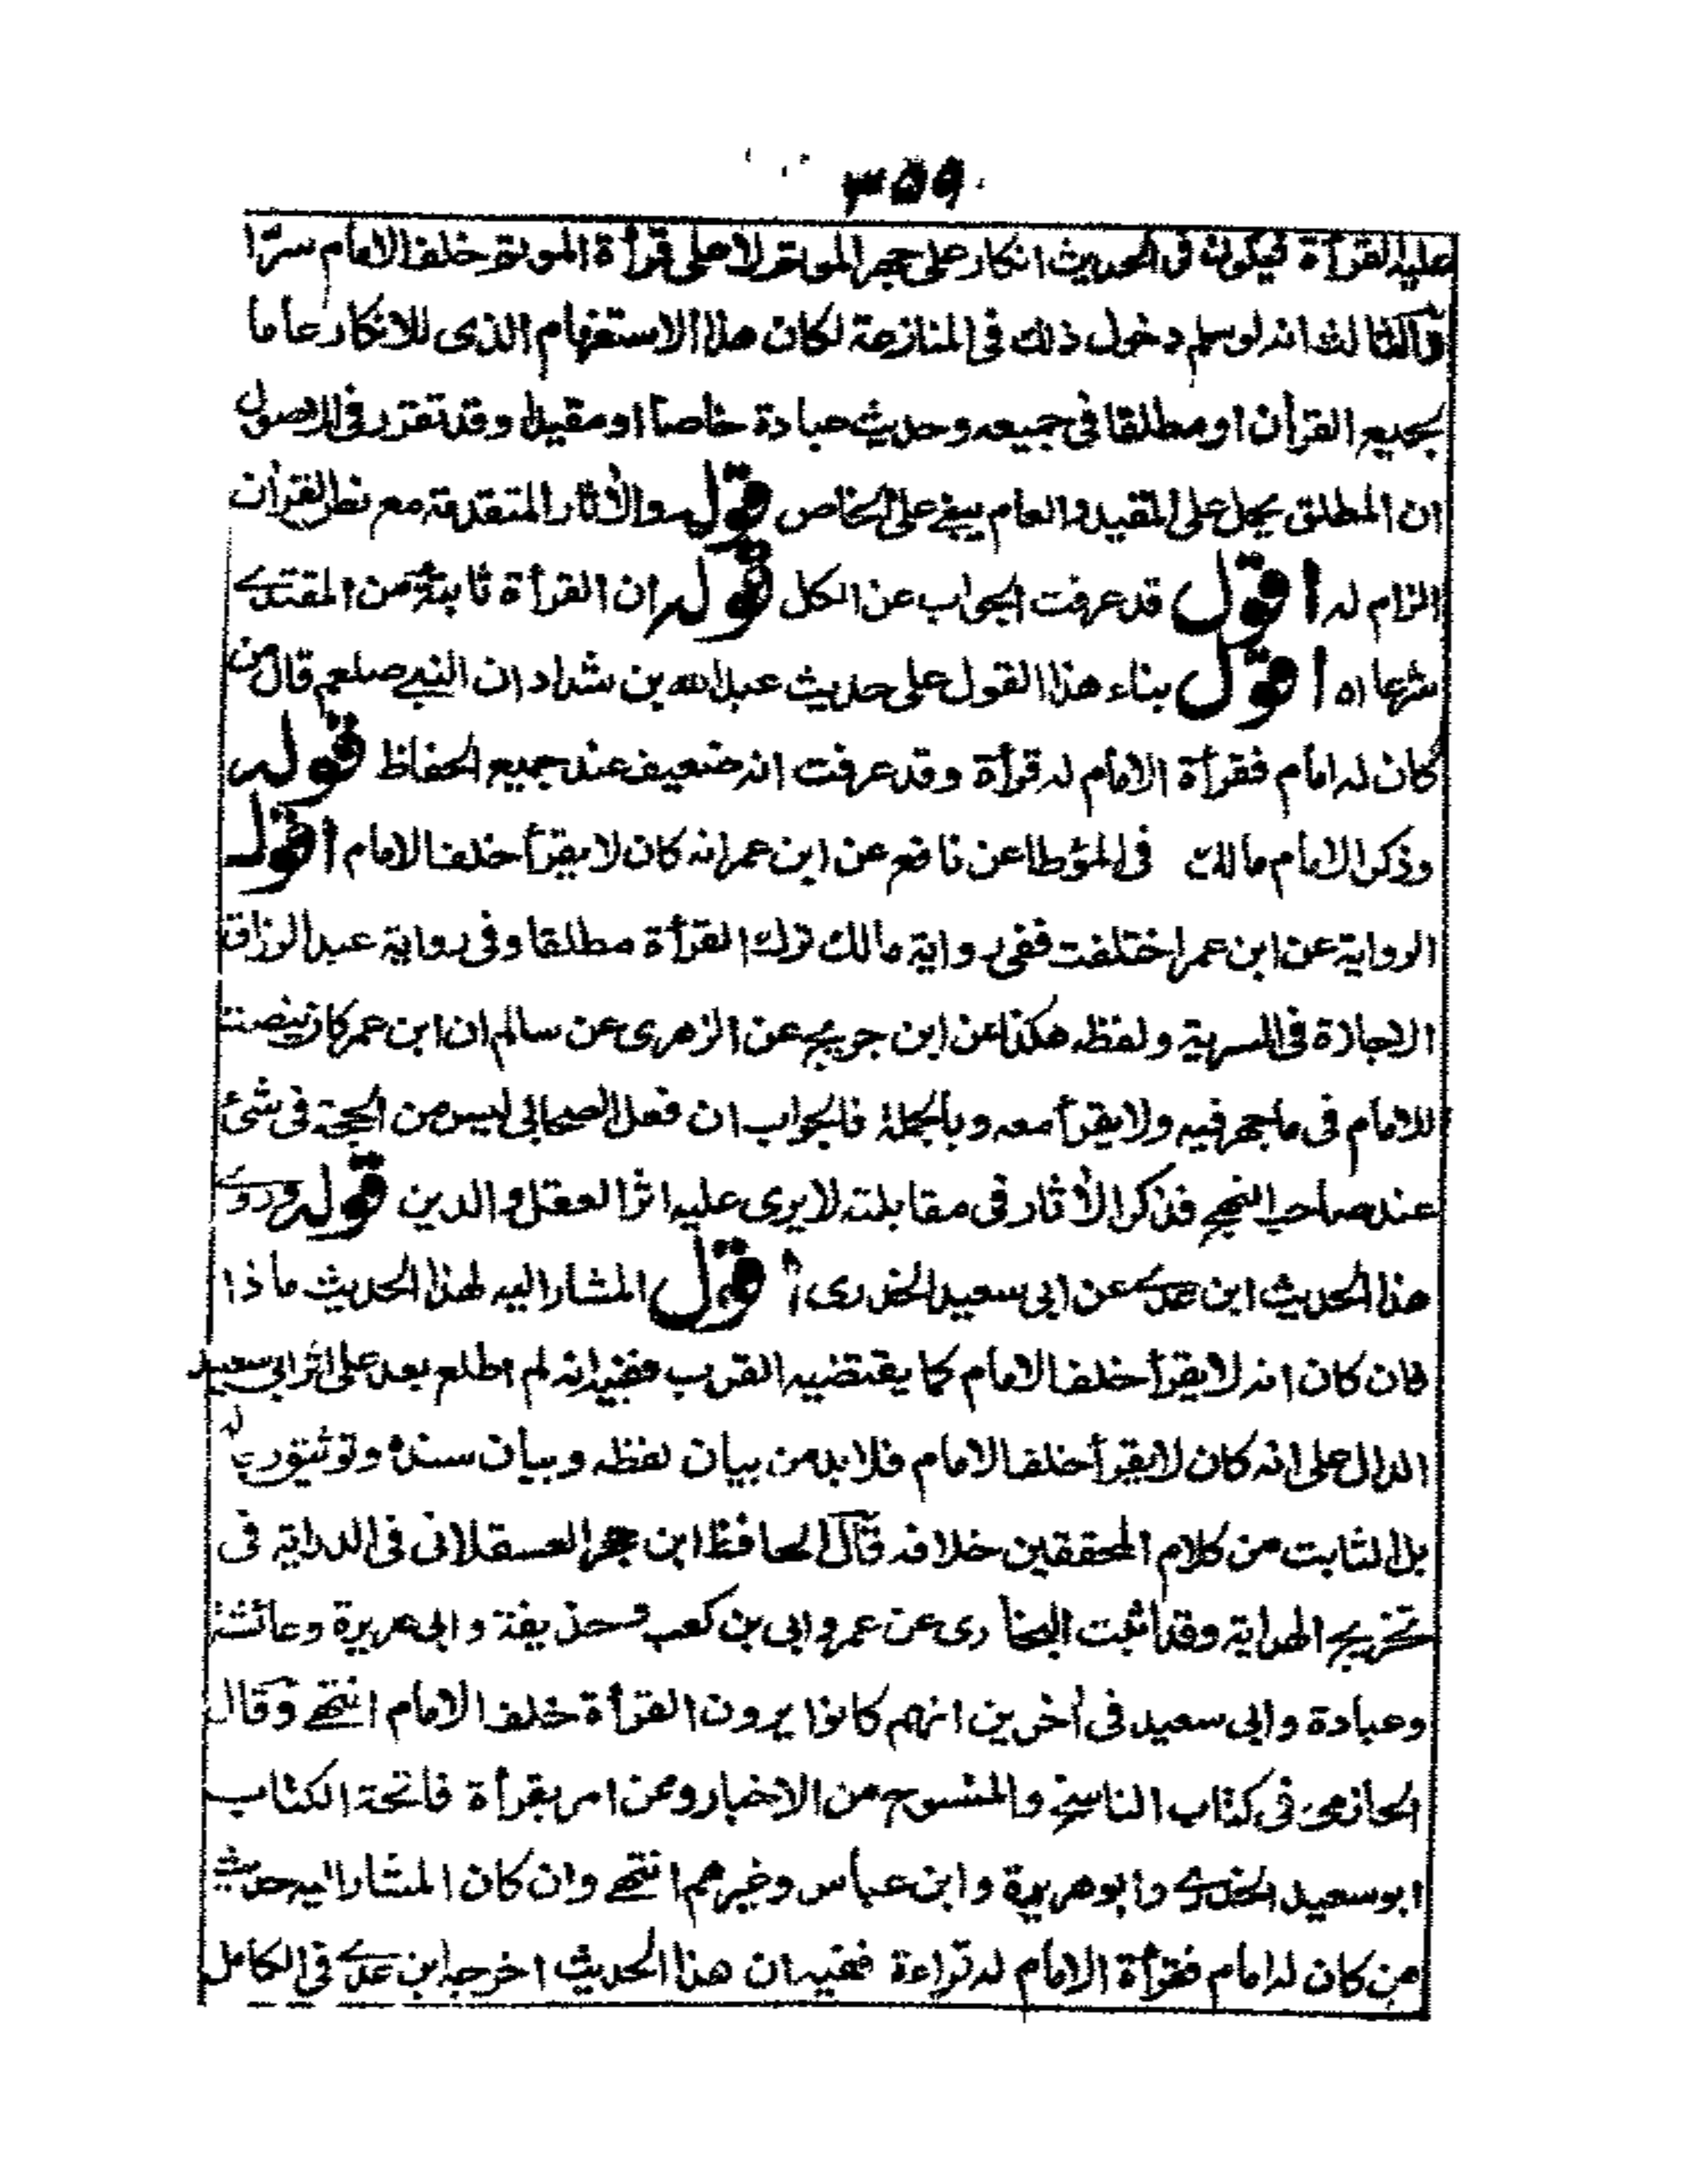 ٣٥٩
عليه القرأة فيكون فى الحديث انكار على جهر الموتم لا على قرأة الموتم خلف الامام سرّا
وآلثالث انه لو سلم دخول ذلك فى المنازعة لكان هذا الاستفهام الذى للانكار عاما
بجميع القرأن او مطلقا فى جميعه وحديث عبادة خاصا او مقيدا وقد تقرر فى الاصول
ان المطلق يحمل على المقيد والعام يبنے على الخاص قوله والأثار المتقدمة مع نظر القرأن
الزام له اقول قد عرفت الجواب عن الكل قوله ان القرأة ثابتة من المقتدے
شرعا اه اقول بناء هذا القول على حديث عبد الله بن شداد ان النبے صلعم قال من
كان له امام فقرأة الامام له قرأة وقد عرفت انه ضعيف عند جميع الحفاظ قوله
وذكر الامام مالك فى المؤطا عن نافع عن ابن عمر انه كان لا يقرأ خلف الامام اقول
الرواية عن ابن عمر اختلفت ففى رواية مالك ترك القرأة مطلقا وفى رواية عبد الرزاق
الاجازة فى السرية ولفظه هكذا عن ابن جريج عن الزهرى عن سالم ان ابن عمر كان ينصت
للامام فى ما جهر فيه ولا يقرأ معه وبالجملة فالجواب ان فعل الصحابى ليس من الحجة فى شئ
عند صاحب النهج فذكر الأثار فى مقابلته لا يرى عليه اثر العقل والدين قوله وروے
هذا الحديث ابن عدے عن ابى سعيد الخدرى اقول المشار اليه لهذا الحديث ماذا
فان كان انه لا يقرأ خلف الامام كما يقتضيه القرب ففيه انه لم اطلع بعد على اثر ابى سعيد
الدال على انه كان لا يقرأ خلف الامام فلا بد من بيان لفظه وبيان سنده وتوثيق
بل الثابت من كلام المحققين خلافه قآل الحافظ ابن حجر العسقلانى فى الدراية فى
تخريج الهداية وقد اثبت البخارى عن عمر وابى بن كعب وحذيفة وابى هريرة وعائشة
وعبادة وابى سعيد فى أخرين انهم كانوا يرون القرأة خلف الامام انتهے وقال
الحازمى فى كتاب الناسخ والمنسوخ من الاخبار وممن امر بقرأة فاتحة الكتاب
ابو سعيد الخدرے وابو هريرة وابن عباس وغيرهم انتهے وان كان المشار اليه حديث
من كان له امام فقرأة الامام له قراءة ففيه ان هذا الحديث اخرجه ابن عدے فى الكامل